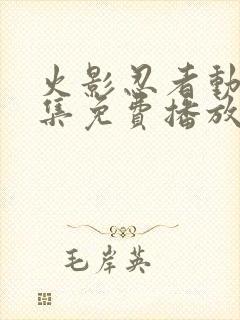 火影忍者動
集免費播放
毛岸英